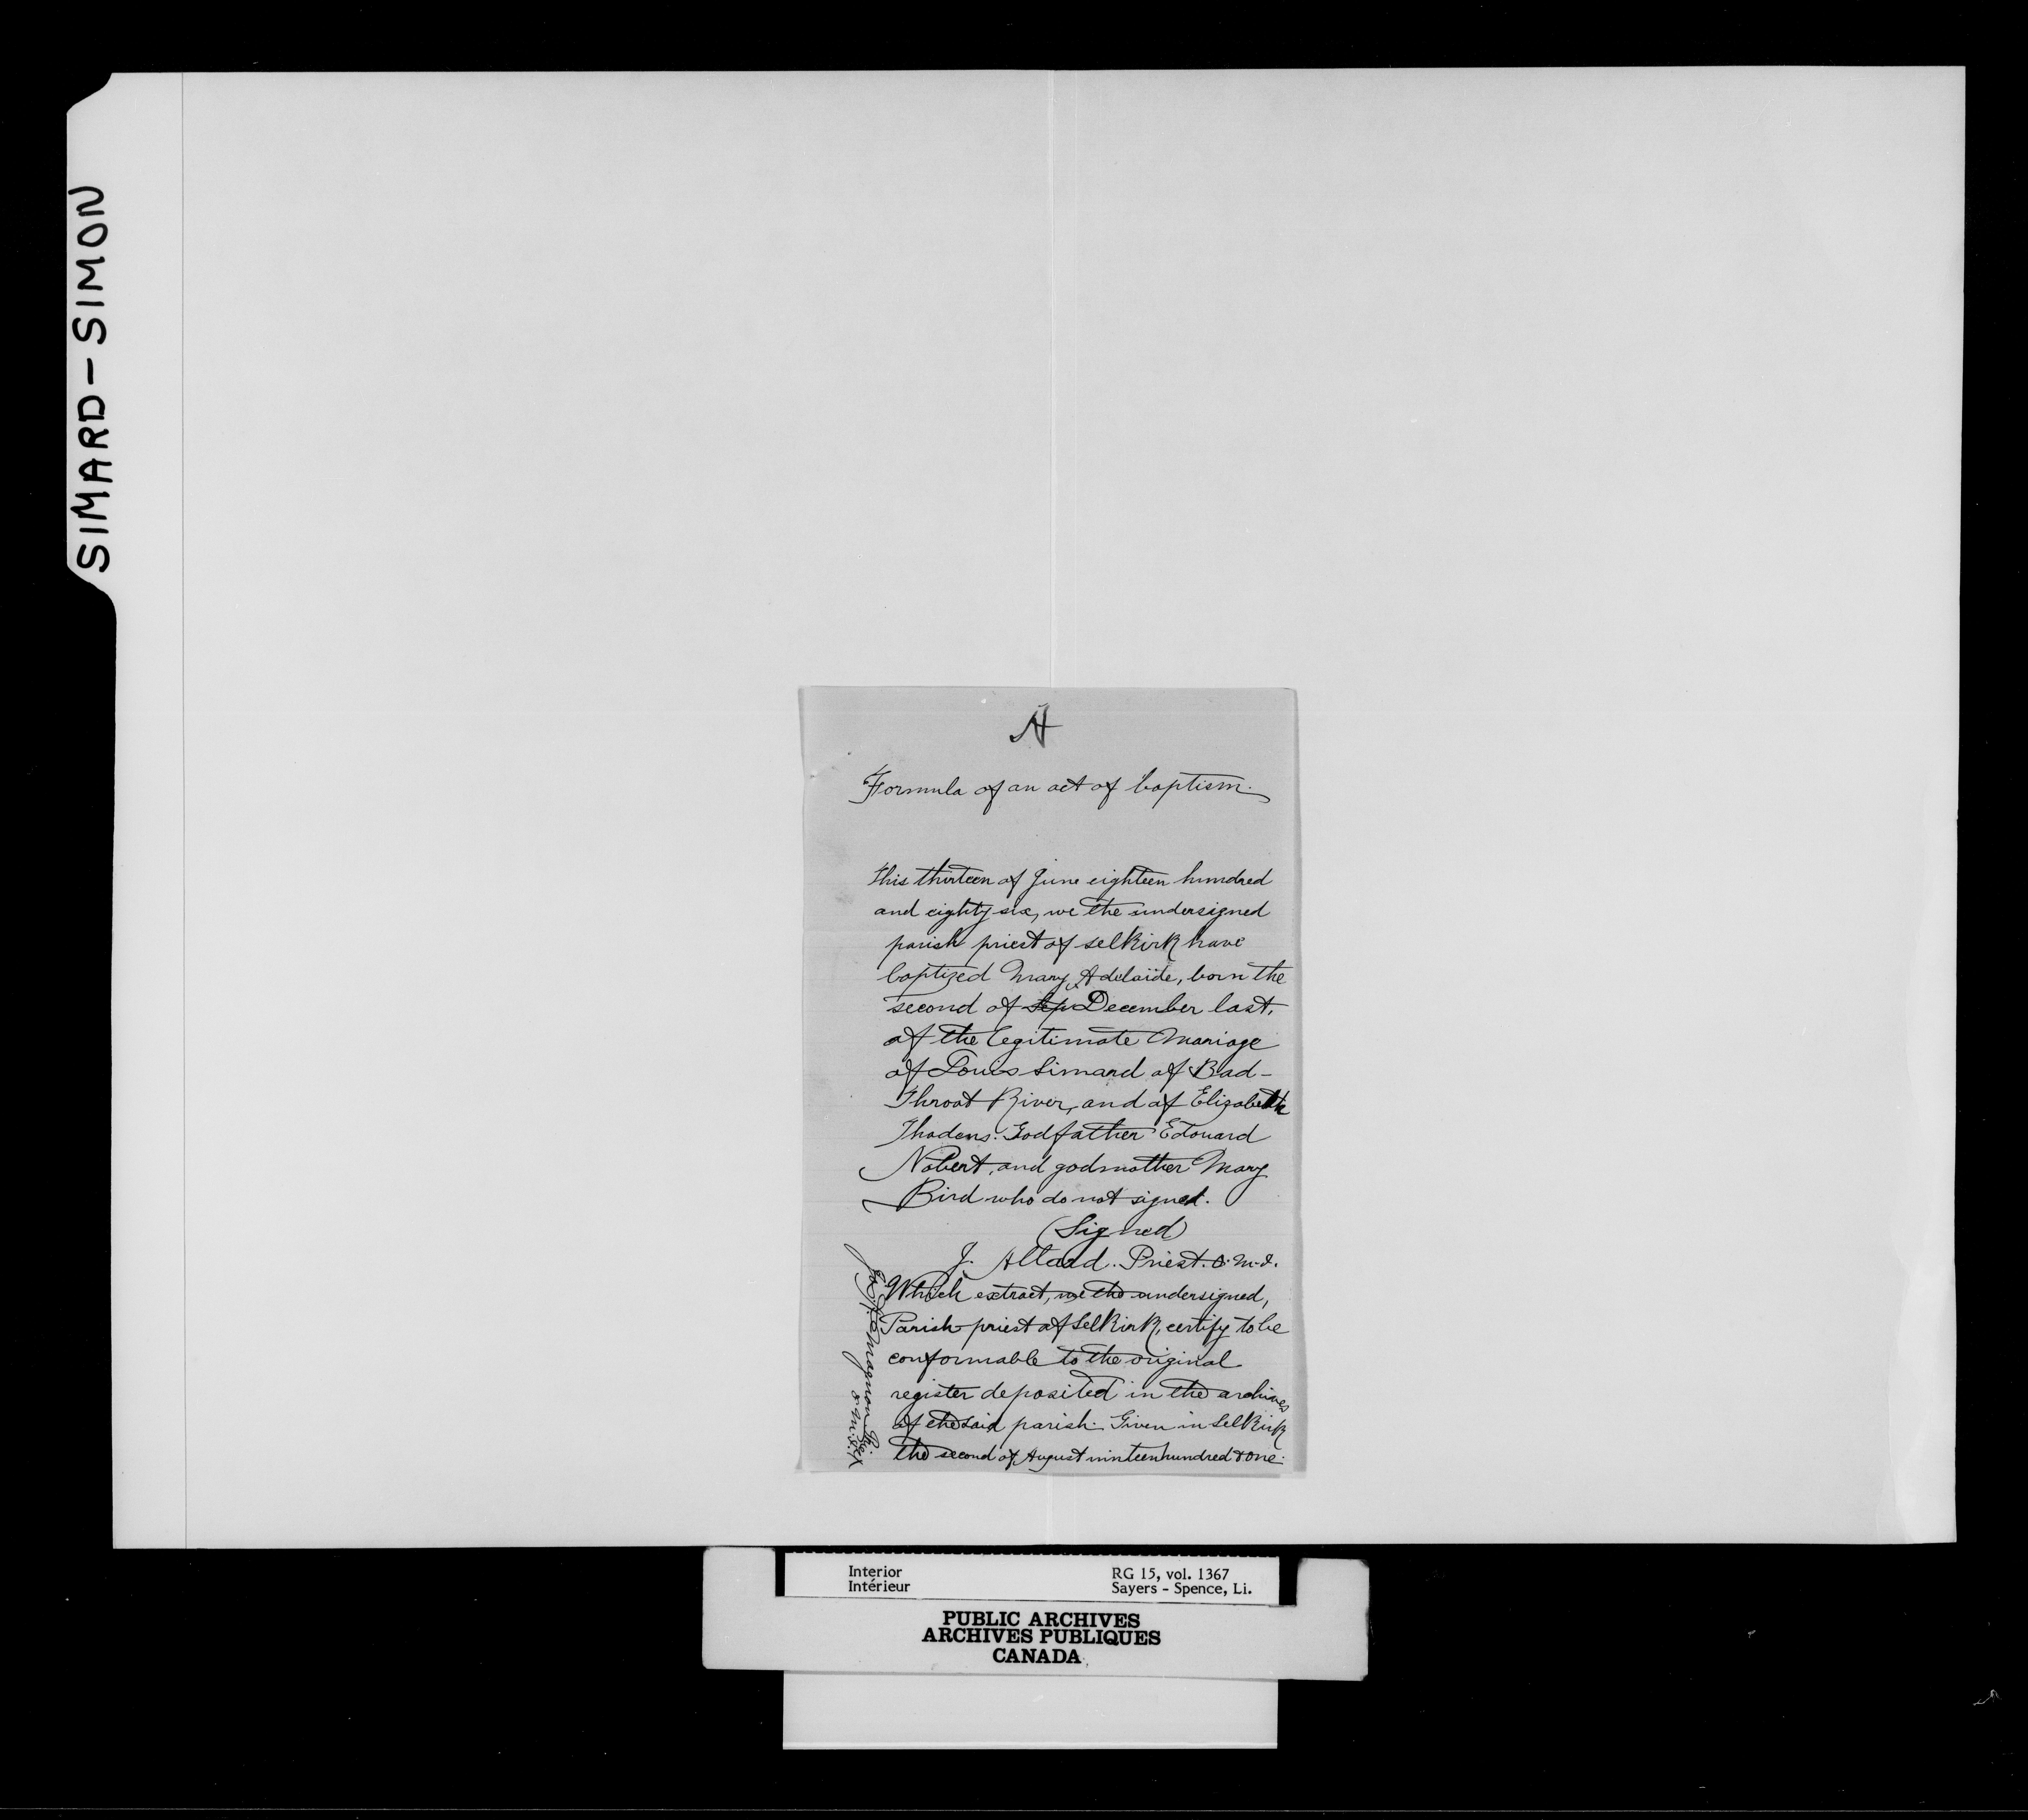 SIMARD-SIMON
A
Formula of an act of baptism.
This thirteen of June eighteen hundred
and eighty six, we the undersigned
parish priest of selkirk have
baptized Mary Adelaïde, born the
second of Sep December last,
of the legitimate Mariage
of Louis Simard of Bad-
Throat River, and of Elizabeth
Thadens. Godfather Edouard
Nabert, and godmother Mary
Bird who do not signed.
(Signed)
J. Allard. Priest. O.M.I.
Which extract, we the undersigned,
Parish priest of Selkirk, certify to be
conformable to the original
register deposited in the archives
of the said parish. Given in Selkirk
the second of August ninteen hundred & one.
Magnan
O.M.I.
Interior
Intérieur
RG 15, vol. 1367
Sayers - Spence, Li.
PUBLIC ARCHIVES
ARCHIVES PUBLIQUES
CANADA